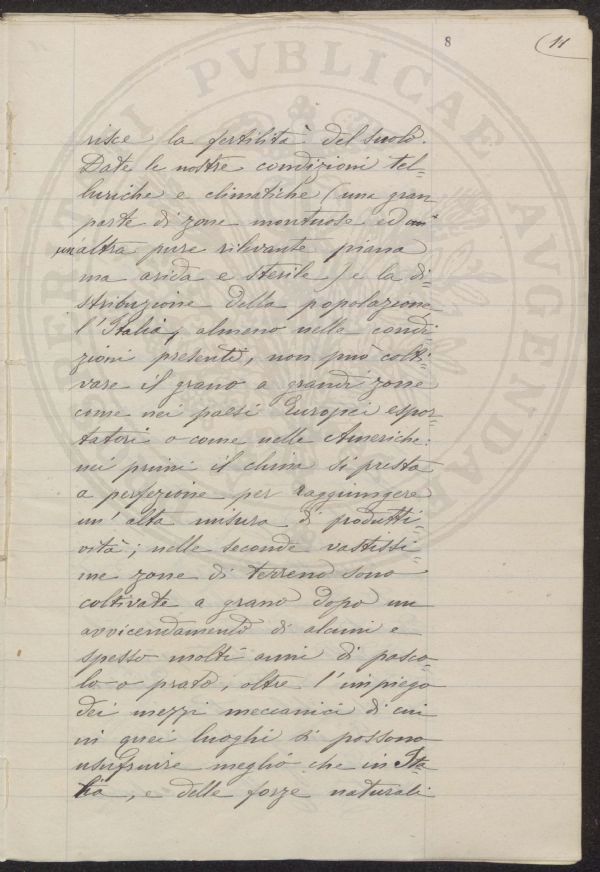 8
11
risce la fertilità del suolo.
Date le nostre condizioni tel-
luriche e climatiche (una gran
parte di zone montuose ed
un altra pure rilevante piana
ma arida e sterile) e la di-
stribuzione della popolazione,
l'Italia, almeno nella condi-
zioni presenti, non può colti-
vare il grano a grandi zone
come nei paesi Europei espor-
tatori o come nelle Americhe:
nei primi il clima si presta
a perfezione per raggiungere
un' alta misura di produtti-
vità; nelle seconde vastissi-
me zone di terreno sono
coltivate a grano dopo un
avvicendamento di alcuni e
spesso molti anni di pasco-
lo o prato, oltre l'impiego
dei mezzi meccanici di cui
in quei luoghi si possono
usufruire meglio che in Ita-
lia, e delle forze naturali
PVBLICAE
AVGENDAE